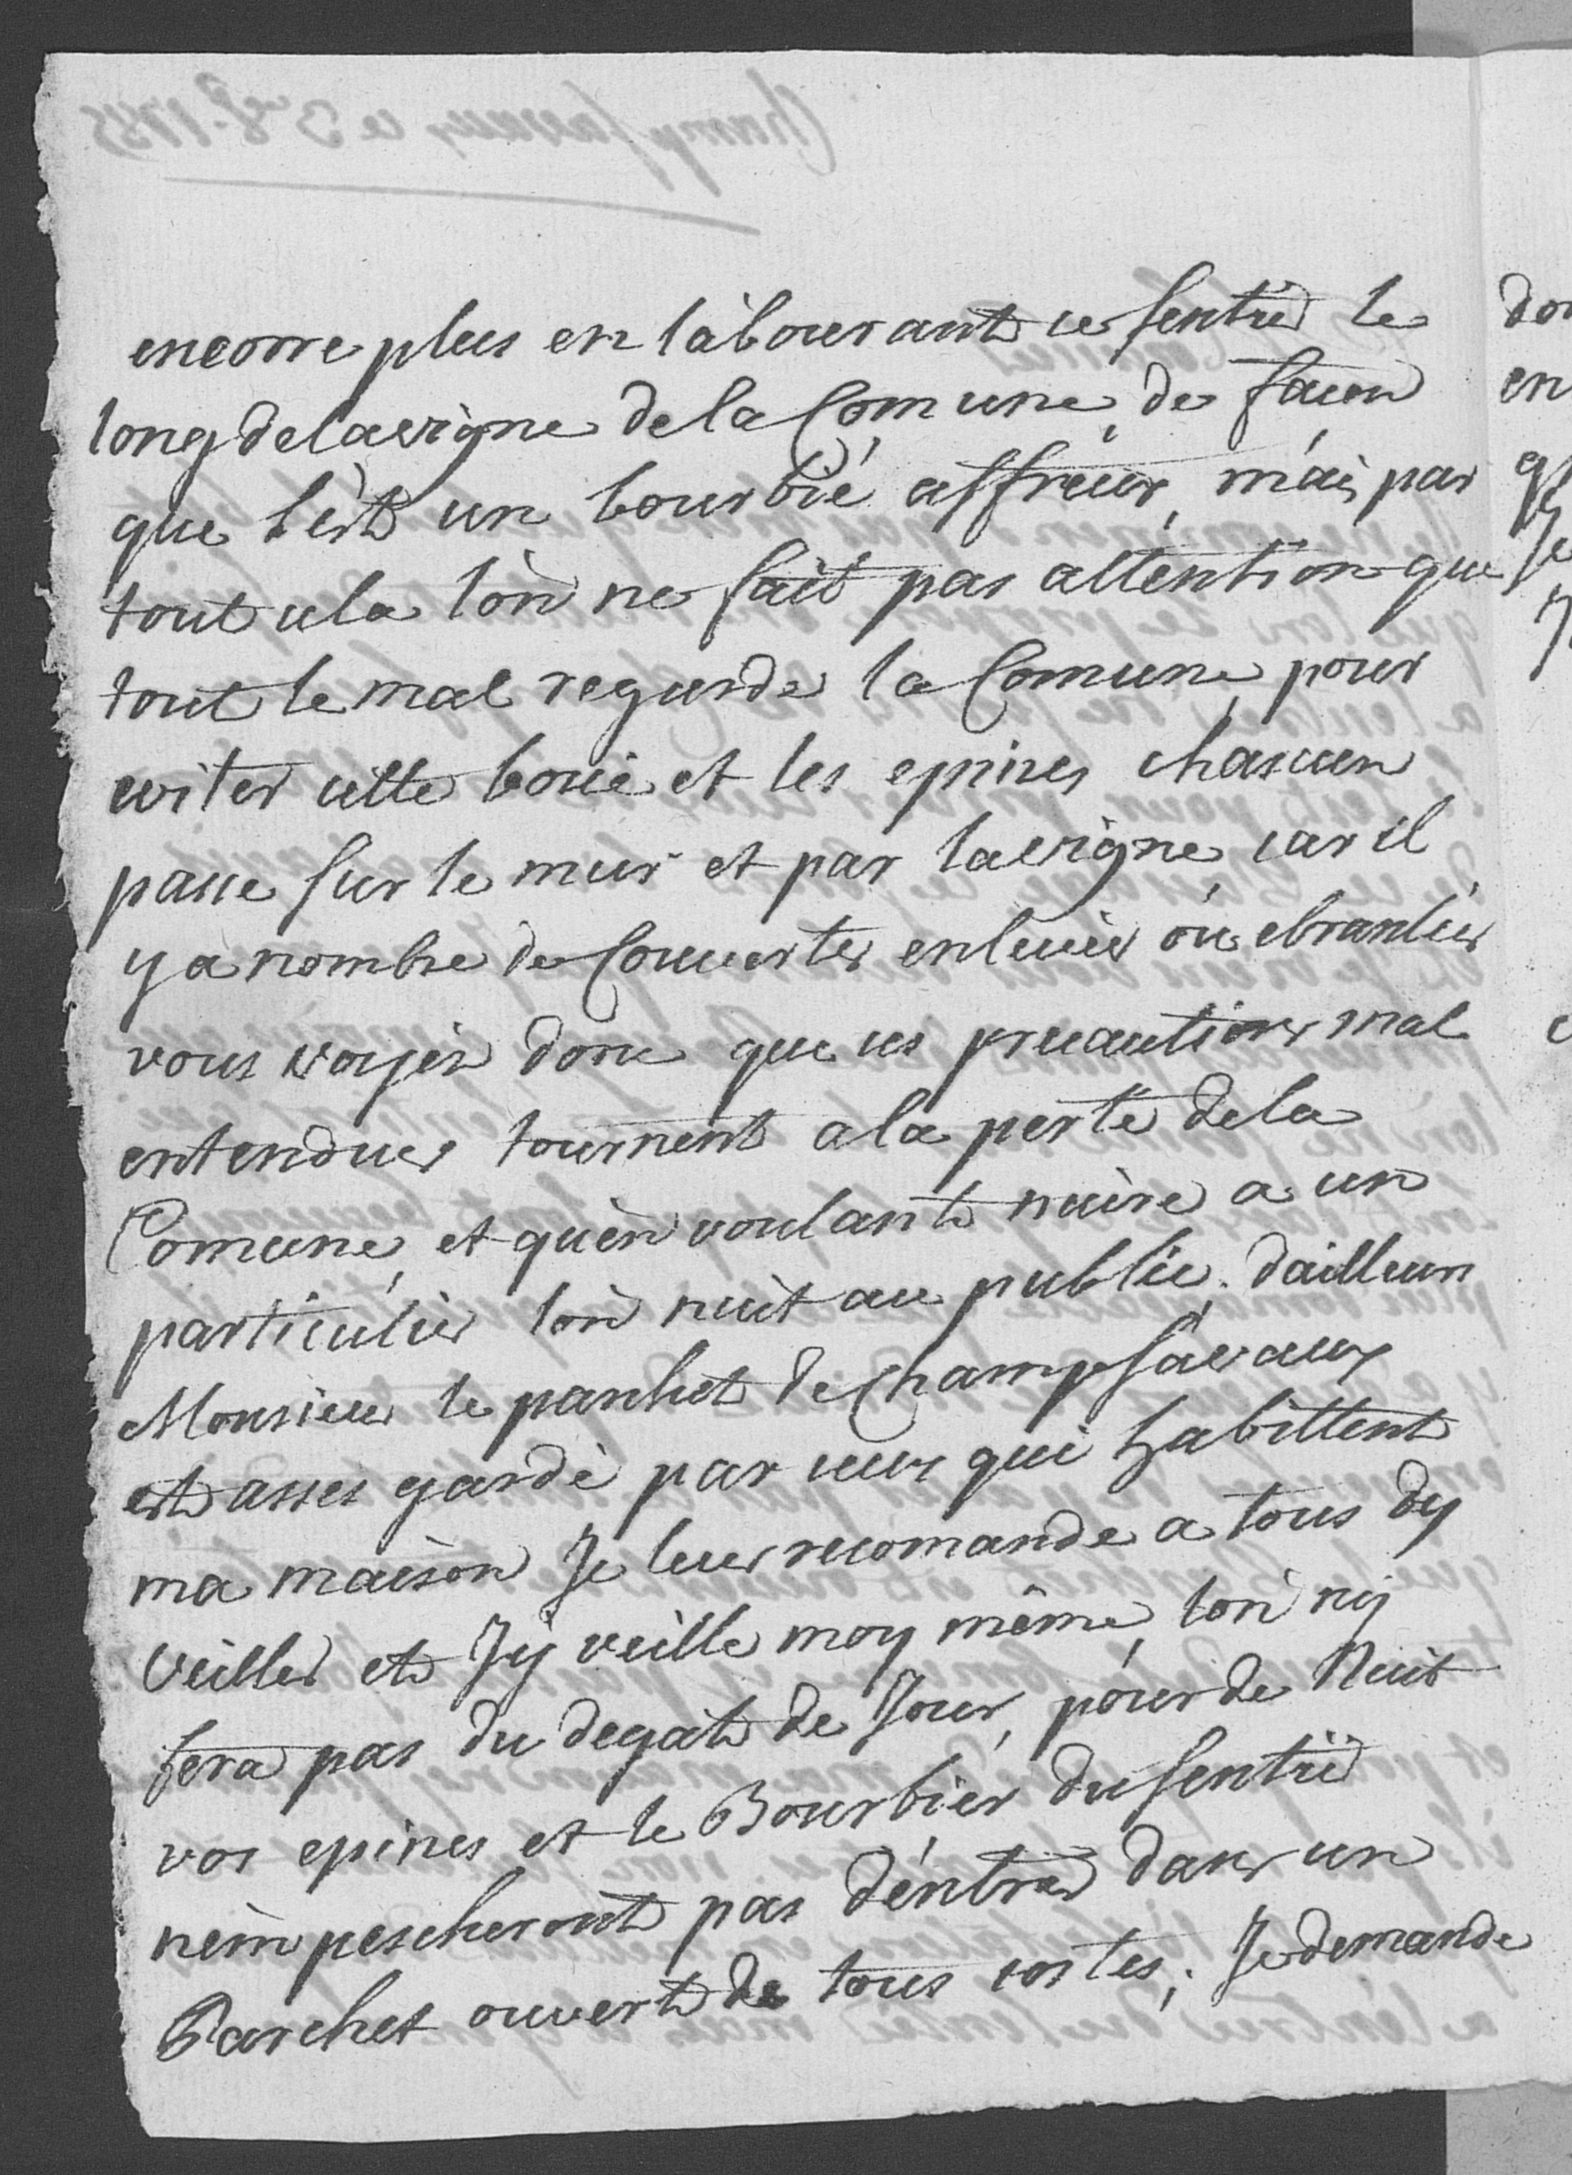 encorre plus en làbourant ce sentié le
long de la vigne de la Comune, de facon
que s'est un bourbié affreux, màis par
tout cela lòn ne fait pas attention que
tout le mal regarde la Comune, pour
eviter cette boüe et les epines chascun
passe sur le mur et par la vigne, car il
y a nombre de Couvertes enlevées où ebranlées
vous voyés donc que ces precautions mal
entendues tournent a la perte de la
Comune, et quèn voulant nuire a un
particulier lòn nuit au public. dailleurs
Monsieur le parchet de Champsàvaux
est asses gardé par ceux qui habittent
ma maison Je leur recomande a tous dy
veiller et Jÿ veille moy même, lòn nÿ
fera pas du degàt de Jour, pour de Nuit
vos epines et le Bourbier du sentié
nèmpescheront pas déntrer dans un
Parchet ouvert de tous costes; Je demande